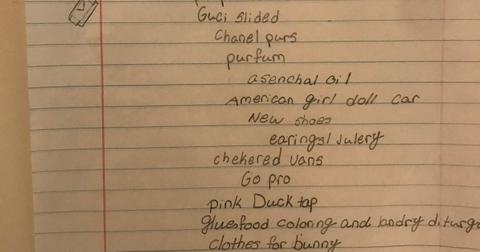 Guci slided
Chanel purs
purfum
asenchal oil
American girl doll car
New shoes
earings/Julery
chekered vans
Go pro
pink Duck tap
glues food coloring and landry diturg
clothes for bunny